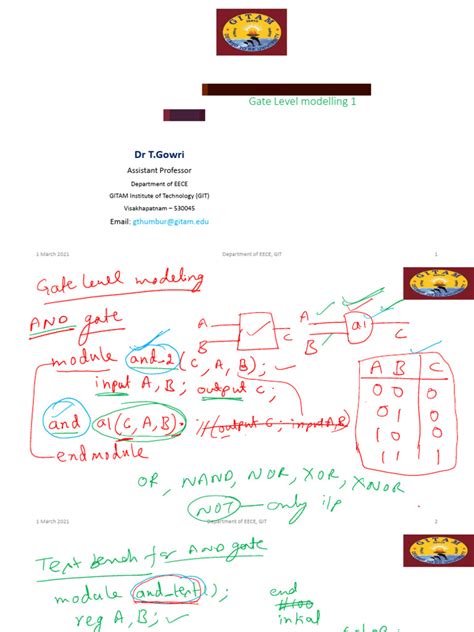 GITAM
Gate Level modelling 1
Dr T.Gowri
Assistant Professor
Department of EECE
GITAM Institute of Technology (GIT)
Visakhapatnam – 530045
Email: gthumbur@gitam.edu
1 March 2021 Department of EECE, GIT 1
GITAM
Gate Level modeling
AND gate
A B C
A B a1 C
module and_2 (C, A, B);
input A, B; output C;
and a1(C, A, B); //(output C; input A,B)
endmodule
A B C
0 0 0
0 1 0
1 0 0
1 1 1
OR, NAND, NOR, XOR, XNOR
NOT — only i/p
1 March 2021 Department of EECE, GIT 2
GITAM
Text bench for AND gate
module and_test();
reg A, B;
end
#100